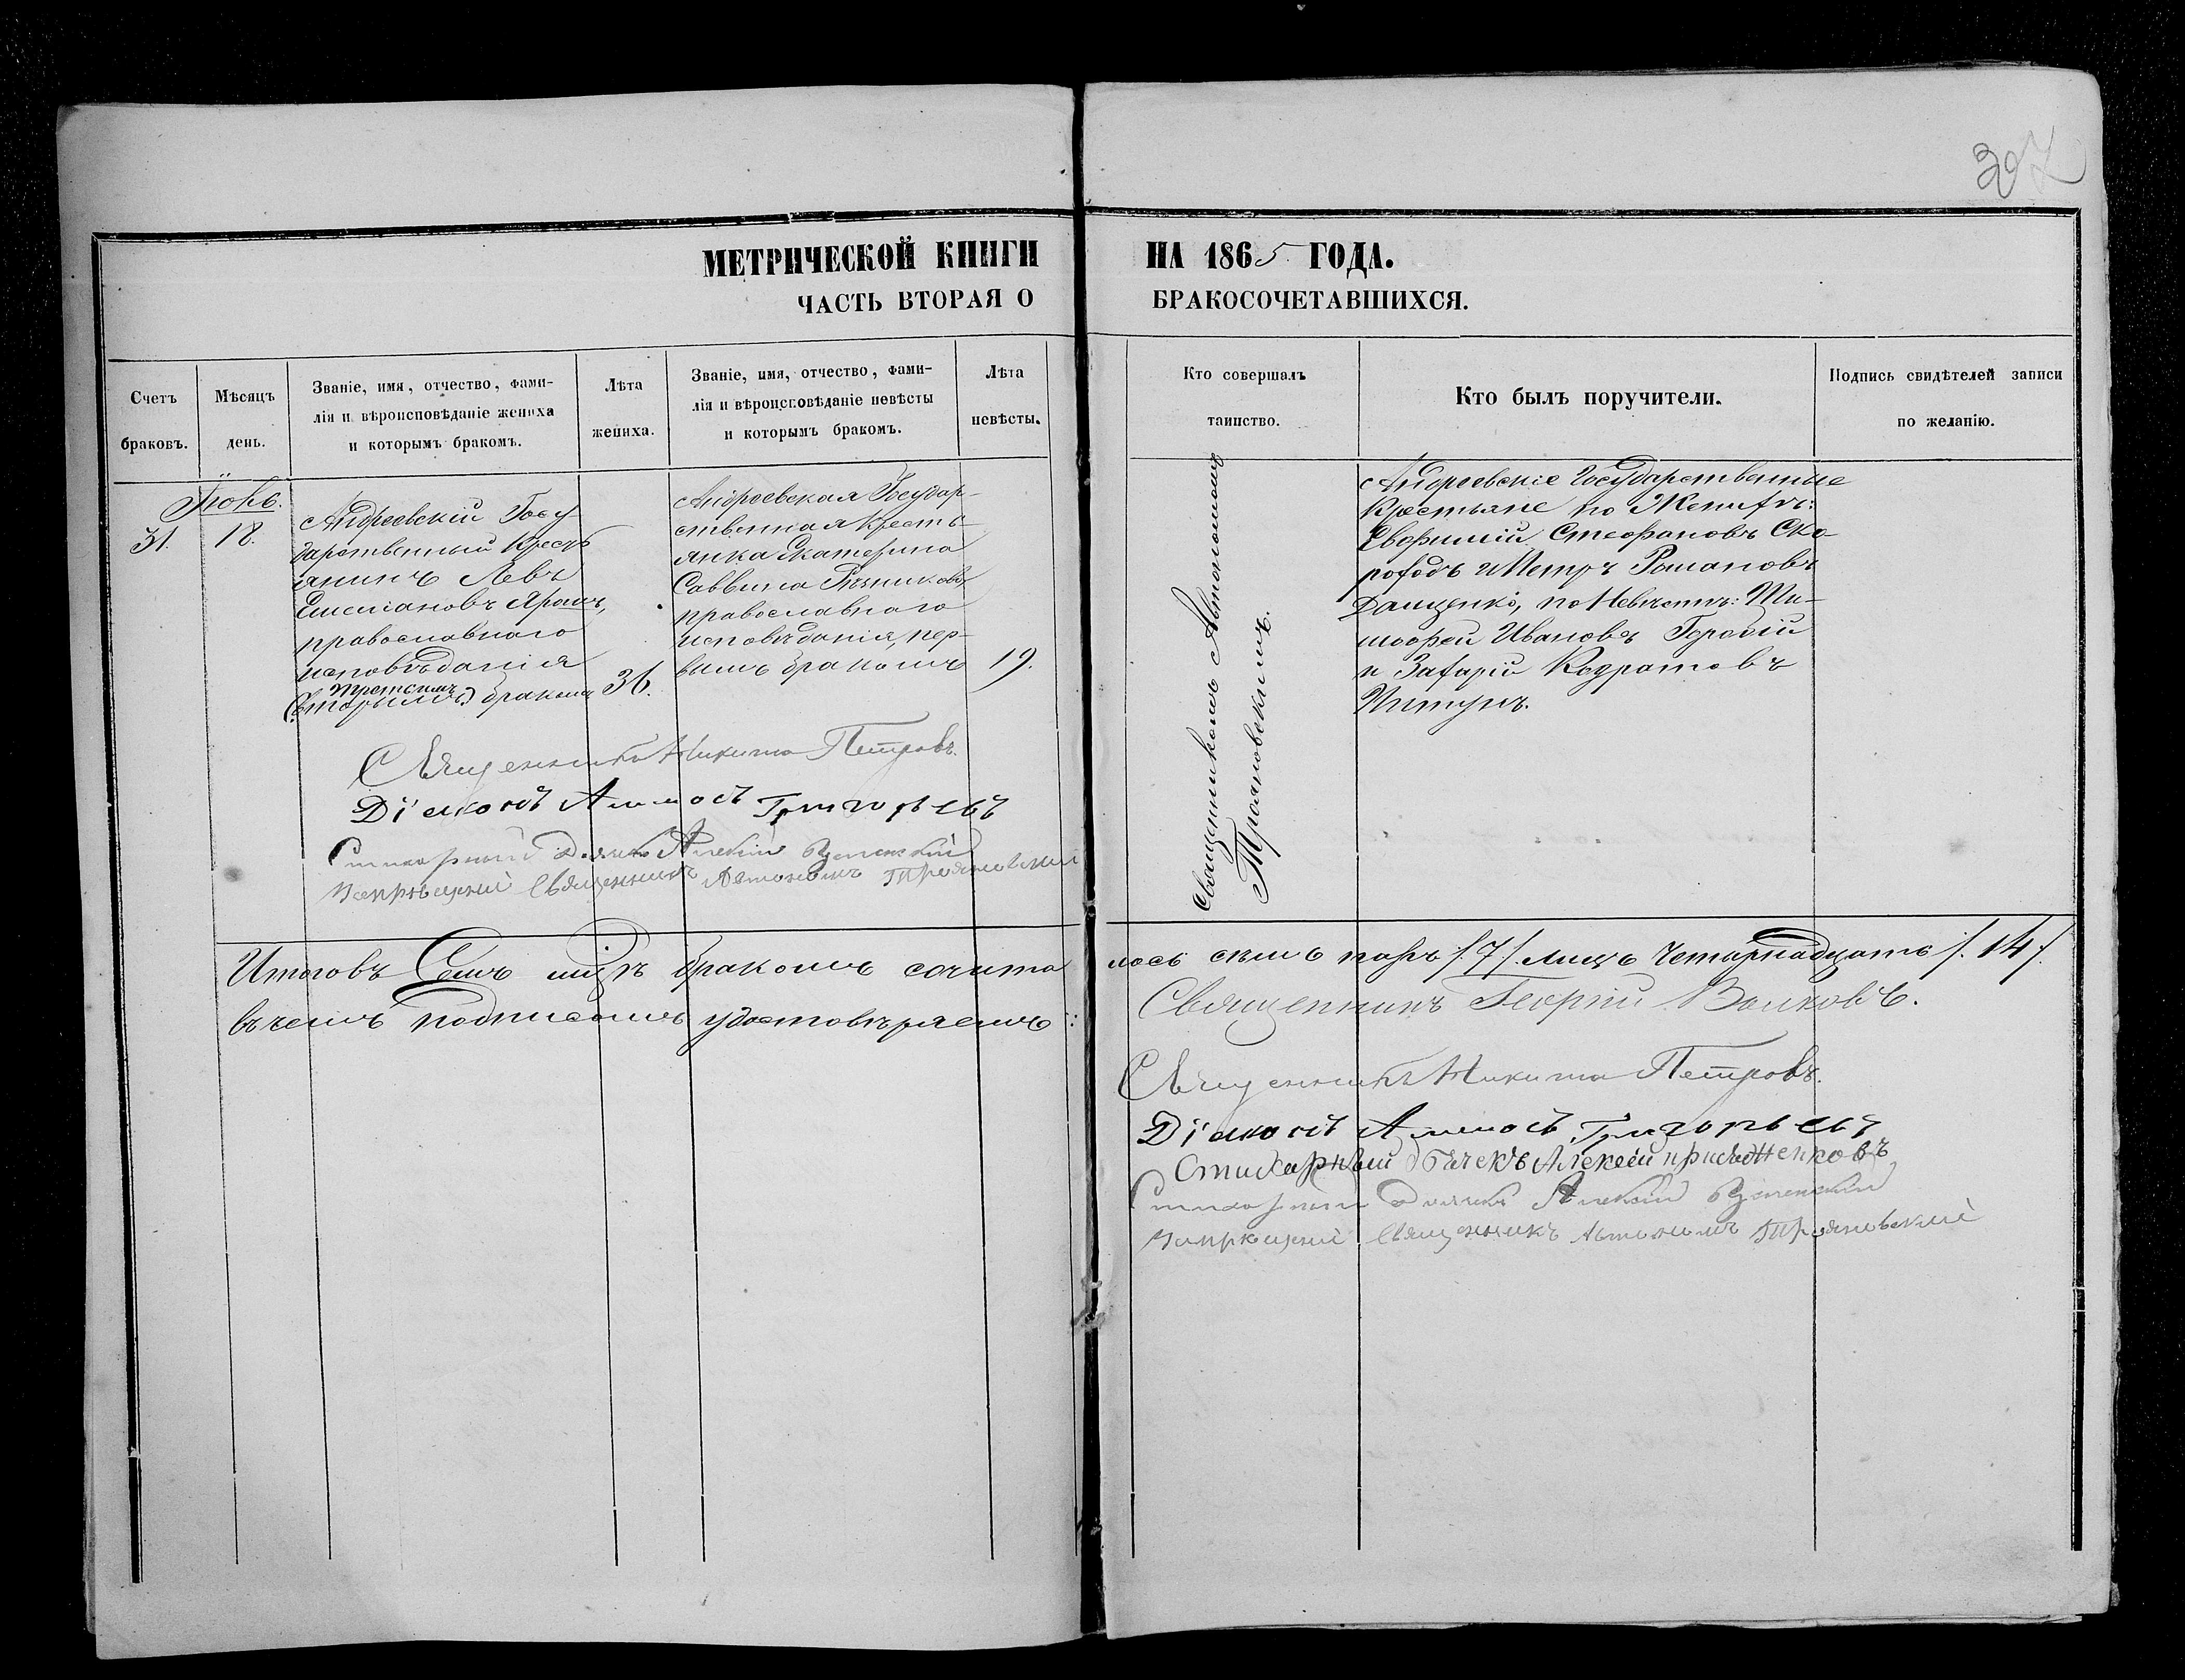 307
МЕТРИЧЕСКОЙ КНИГИ НА 1865 ГОДА.
ЧАСТЬ ВТОРАЯ О БРАКОСОЧЕТАВШИХСЯ.
Счетъ браковъ.
Мѣсяцъ день.
Званіе, имя, отчество, фами-
лія и вѣроисповѣданіе жениха
и которымъ бракомъ.
Лѣта жениха.
Званіе, имя, отчество, фами-
лія и вѣроисповѣданіе невѣсты
и которымъ бракомъ.
Лѣта невѣсты.
Кто совершалъ таинство.
Кто былъ поручители.
Подпись свидѣтелей записи
по желанію.
31.
18.
Андреевскій Госу-
дарственный Крестъ
янинъ Левъ
Емеліановъ
православнаго
исповѣданія
третьимъ
(вторымъ) бракомъ
36.
Андреевская Государ-
ственная Кресть-
янка Екатерина
Саввина Рѣзникова
православнаго
исповѣданія, пер-
вымъ бракомъ
19.
Священникомъ Автономомъ
Трояновскимъ.
Андреевскіе Государственные
Крестьяне по Женихѣ:
Стефановъ Ско-
роходъ и Петръ Романовъ
Даценко, по Невѣстѣ: Ти-
мофей Ивановъ
и Захарій
Священникъ Никита Петровъ.
Діаконъ Аммосъ Григорьевъ
Стихарный Дьякъ Алексій
Священникъ Автономъ Трояновскій
Итого въ Семъ бракомъ сочита
лось семь паръ /.7/. лицъ четырнадцать /.14/.
въ чемъ подписомъ удостовѣряемъ:
Священникъ Георгій Волковъ.
Священникъ Никита Петровъ.
Діаконъ Аммосъ Григорьевъ
Стихарный Дьячекъ Алексѣй
Стихарный Дьякъ Алексій
Священникъ Автономъ Трояновскій